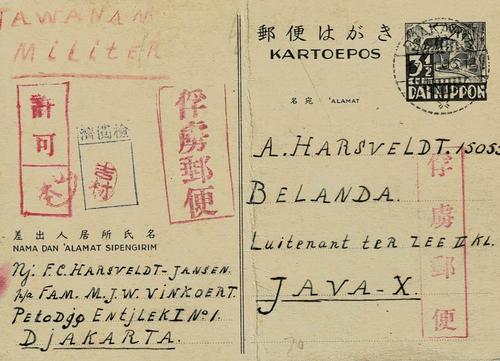 TAWANAN
MILITER
許可
検閲済
俘虜郵便
差出人居所氏名
NAMA DAN 'ALAMAT SIPENGIRIM
Nj. F.C. HARSVELDT-JANSEN.
p/a FAM. M.J.W. VINKOERT.
PETODJO ENTJLEK I No 1.
DJAKARTA.
郵便はがき
KARTOEPOS
名宛 'ALAMAT
3½
DAI NIPPON
A. HARSVELDT. 15055
BELANDA.
Luitenant ter ZEE II KL.
JAVA-X.
俘虜郵便